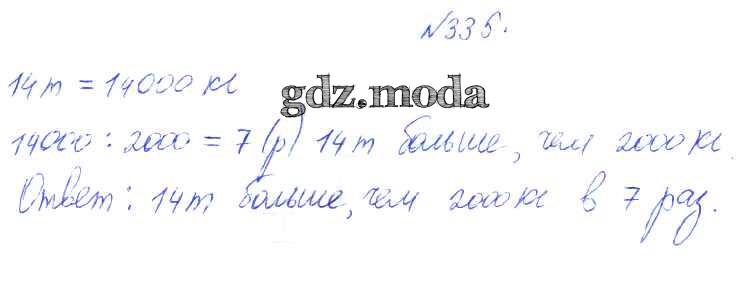 №335.
14т = 14000 кг
gdz.moda
14000 : 2000 = 7 (р) 14т больше, чем 2000 кг.
Ответ: 14т больше, чем 2000 кг в 7 раз.